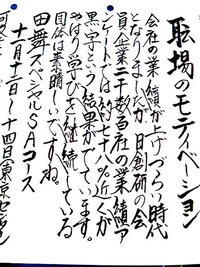 職場のモティベーション
会社の業績が上げづらい時代
となりましたが、日創研の会
員企業二千数百社の業績ア
ンケートでは約七十八%近くが
黒字という結果がでています。
やはり学びを継続している
団体は素晴しいですね。
田舞スペシャルSAコース
十月十二日~十四日東京センター